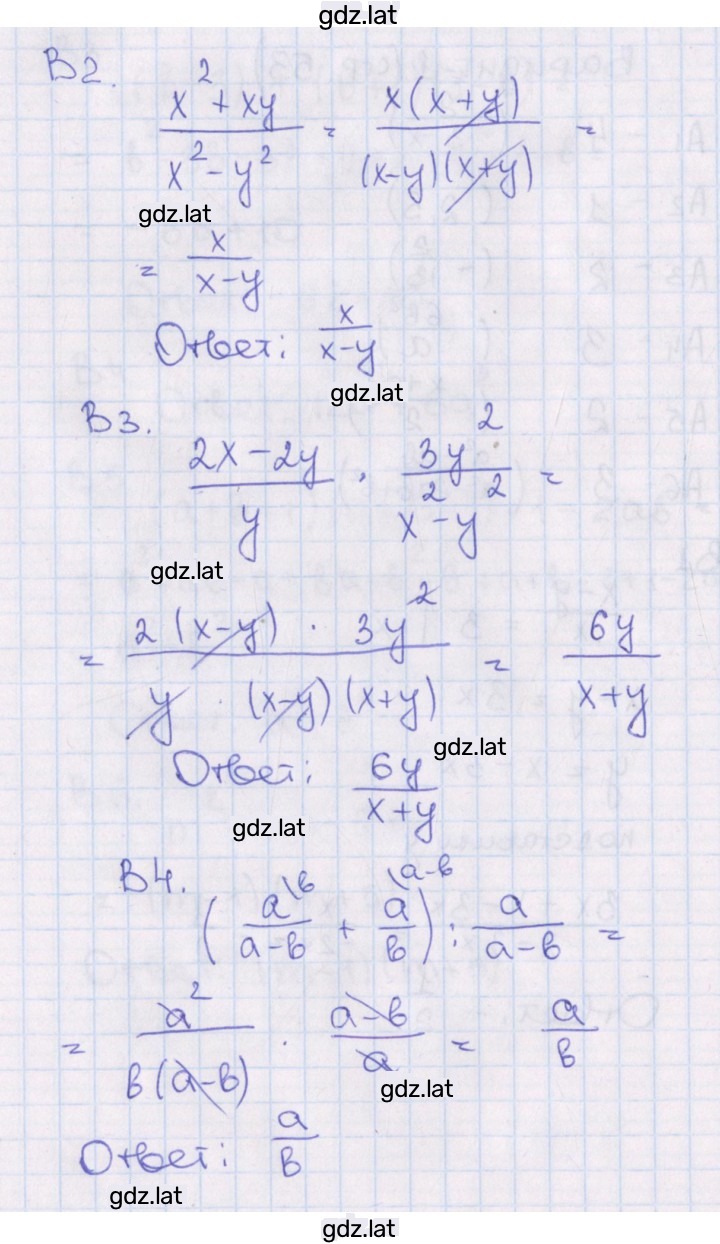 gdz.lat
В2.
x² + xy / x² - y² = x(x+y) / (x-y)(x+y) =
gdz.lat
= x / x-y
Ответ: x / x-y
gdz.lat
В3.
2x - 2y / y · 3y² / x² - y² =
gdz.lat
= 2(x-y) · 3y² / y · (x-y)(x+y) = 6y / x+y
gdz.lat
Ответ: 6y / x+y
gdz.lat
В4.
( a\в / a-в + a\a-в / в ) : a / a-в =
= a² / в(a-в) · a-в / a = a / в
gdz.lat
Ответ: a / в
gdz.lat
gdz.lat